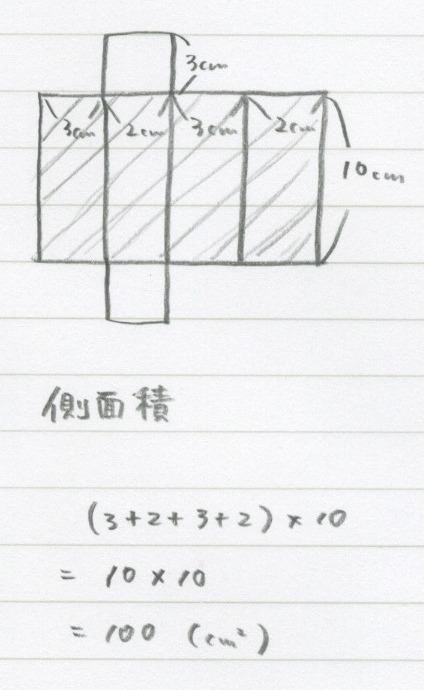 3cm
3cm 2cm 3cm 2cm
10cm
側面積
(3+2+3+2)×10
= 10×10
= 100 (cm²)